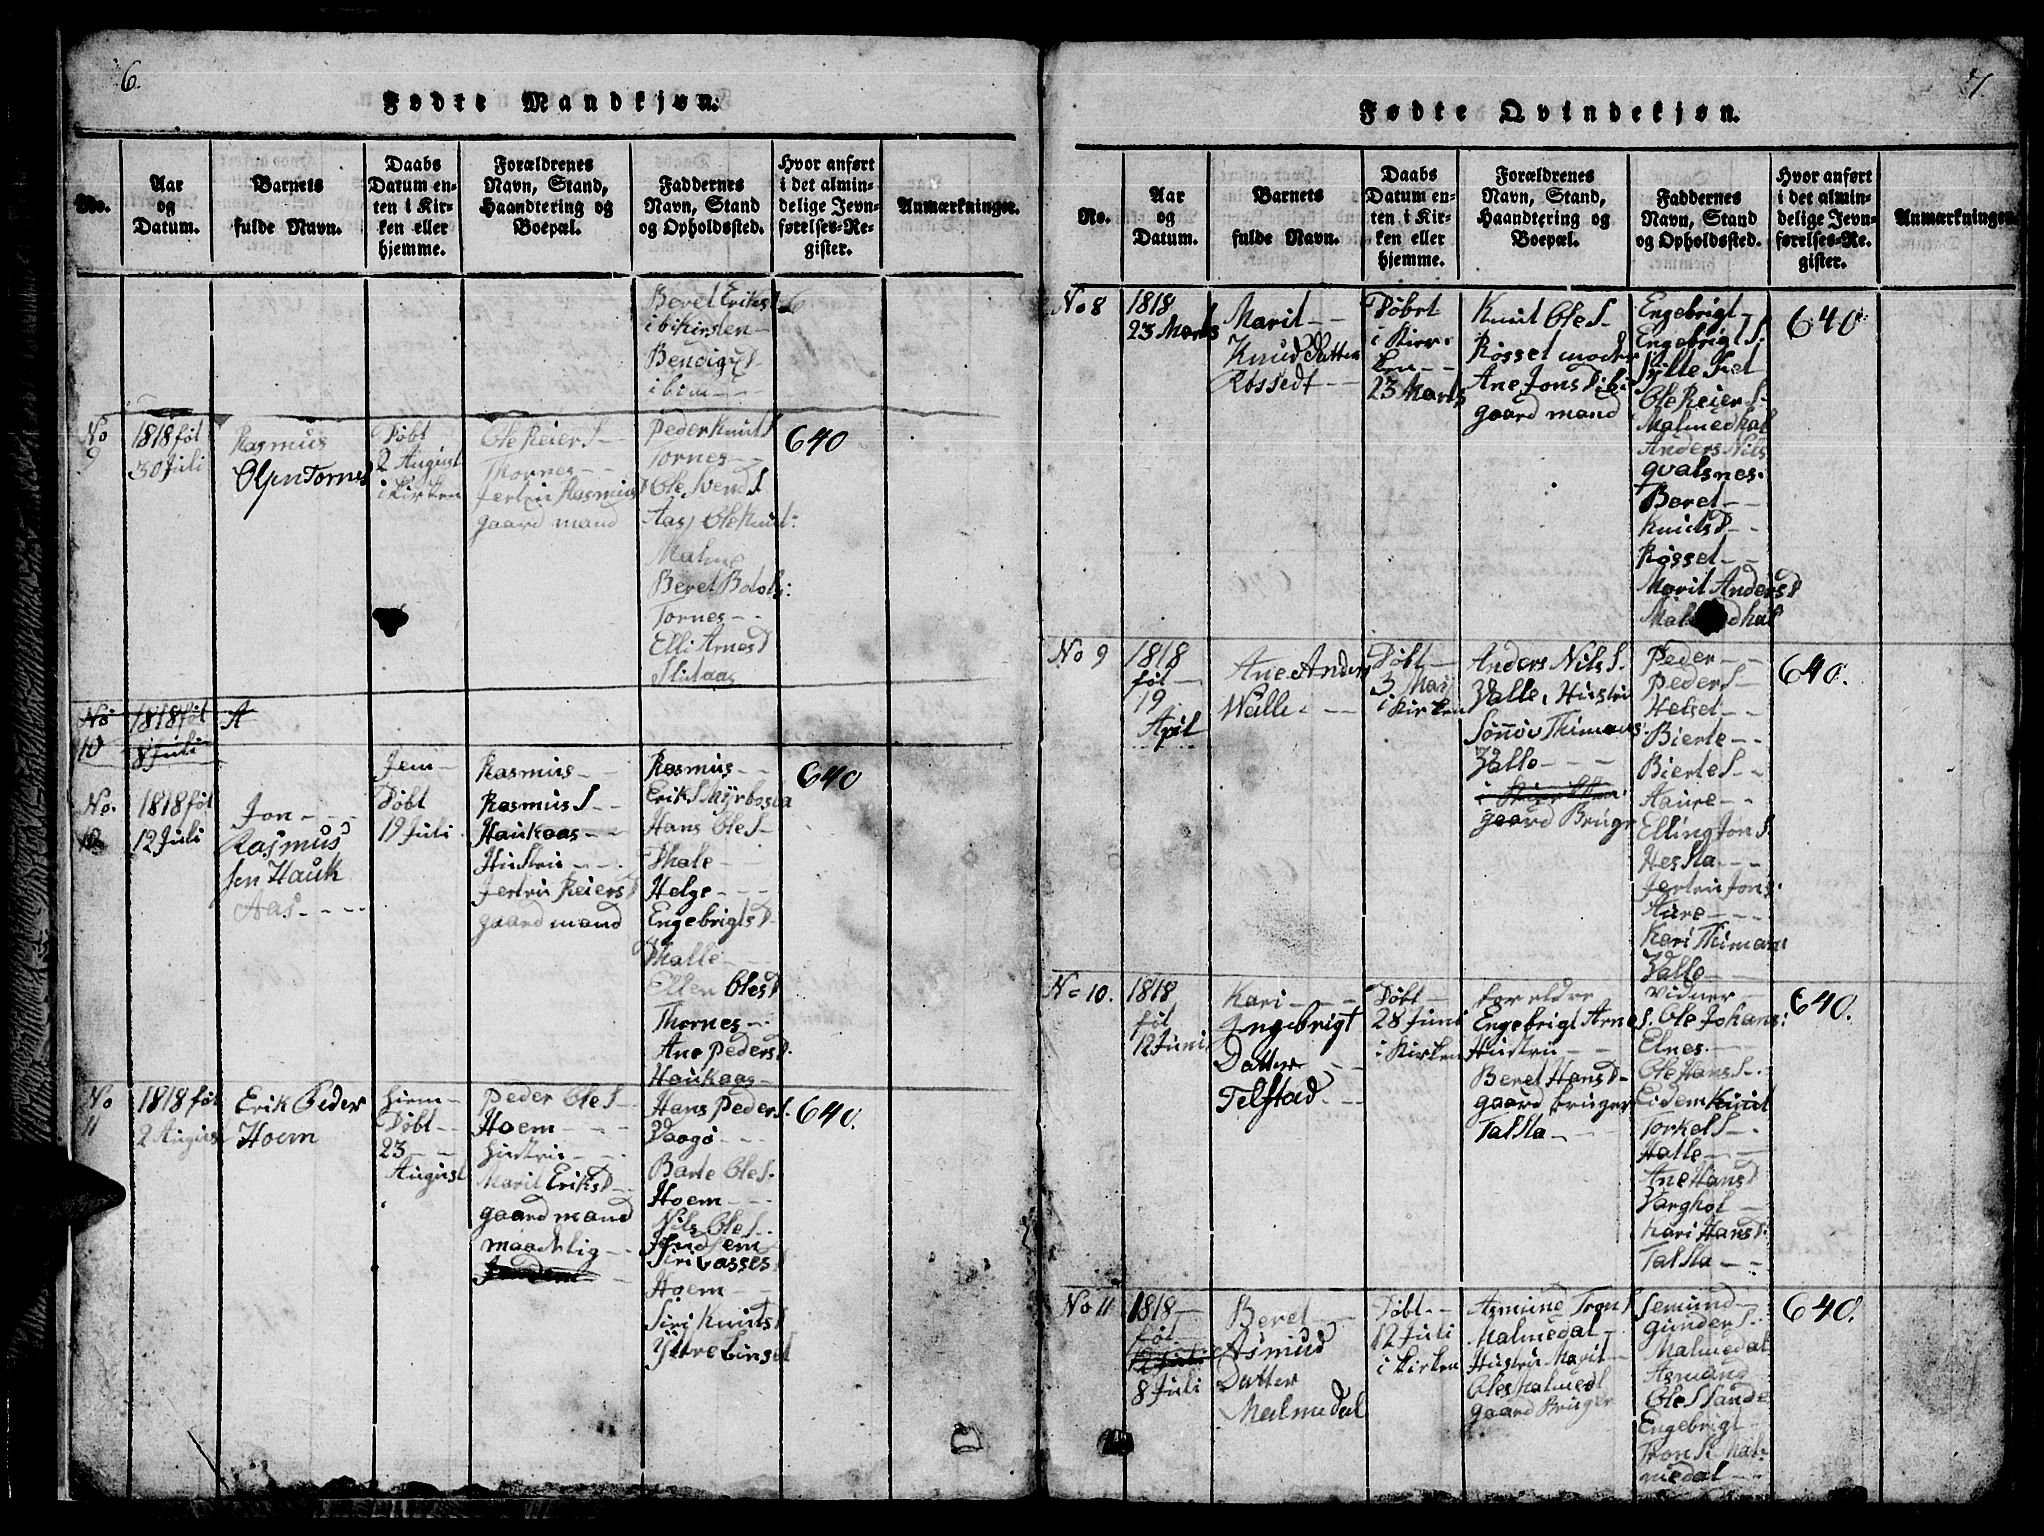 6.
Fødte Mandkjøn.
No.
Aar
og
Datum.
Barnets
fulde Navn.
Daabs
Datum en-
ten i Kir-
ken eller
hjemme.
Forældrenes
Navn, Stand,
Haandtering og
Boepæl.
Faddernes
Navn, Stand
og Opholdssted.
Hvor anført
i det almin-
delige Jevn-
førelses-Re-
gister.
Anmærkninger.
Beret Eriks
Bendigt
No
9
1818 føt
30 Juli
Rasmus
Olsn Tornes
Døbt
2 August
i Kirken
Ole Reier S
Thornes
Jertru Rasmus
gaard mand
Peder Knut S
Tornes
Ole Svend S
Aas Ole Knut
Malmø
Beret Botolv:
Tornes
Elli Arnes D
Slutaas
640
No
10
1818 føt
8 Juli
A
No.
10
1818 føt
12 Juli
Jon
Rasmus
sen Hauk
Aas
Jem
Døbt
19 Juli
Rasmus
Rasmus S
Haukaas
Hustru
Jertru Reiers D
gaard mand
Rasmus
Erik S Myrbosta
Hans Ole S
Thale
Helge
Engebrigts D
Thalle
Ellen Oles D
Thornes
Ane Peders D.
Haukaas
640
No
11
1818 føt
2 August
Erik Peder
Hoem
hiem
Døbt
23
August
Peder Ole S
Hoem
hustru
Marit Eriks D
gaard mand
Hans Peder S.
Vaagø
Barte Ole S.
Hoem
Nils Ole S.
Siri Vasses
Hoem
Siri Knuts D
Yttre Linset
640.
7.
Fødte Qvindekjøn.
No.
Aar
og
Datum.
Barnets
fulde Navn.
Daabs
Datum en-
ten i Kir-
ken eller
hjemme.
Forældrenes
Navn, Stand,
Haandtering og
Boepæl.
Faddernes
Navn, Stand
og Opholdssted.
Hvor anført
i det almin-
delige Jevn-
førelses-Re-
gister.
Anmærkninger.
No 8
1818
23 Marts
Marit
Knud Datter
Røssedt
Døbt
i Kir-
ken
23 Marts
Knut Ole S
Røsset moder
Ane Jons D ibi
gaard mand
Engebrigt
Engebrigt S.
Ole Reier S
Malmedhal
Anders Nils
qvalsnes.
Beret
Knuts D
Røsset
Marit Anders D
640
No 9
1818
føt
19
April
Ane Anders
Walle
Døbt
3 Mai
i Kirken
Anders Nils S.
Valle, Hustru
Sønnøv Thimans
Valle
gaard Bruger
Peder
Peder S
Helset
Bierte
Bierte S
Aaure
Elling Jon S.
Hesta
Jertru Jons
Aure
Kari Thimans
Valle
640.
No 10.
1818
føt
12 Juni
Kari
Ingebrigt
Datter
Telstad
Døbt
28 Juni
i Kirken
foreldre
Engebrigt Arne S.
Hustru
Beret Hans D
gaard bruger
Talsta
vidner
Ole Johans:
Elnes.
Ole Hans S.
Eidem Knut
Torkel S
Halle
Ane Hans D
Varghol
Kari Hans D.
Talsta
640.
No 11
1818
føt
12 Juli
8 Juli
Beret
Asmud
Datter
Malmedal
Døbt
12 Juli
i Kirken
Asmund Tron S
Malmedal
Hustru Marit
Oles Malmedl
gaard Bruger
Semund
gunder S.
Malmedal
Asmand
Ole S Sande
Engebrigt
Tron S. Mal-
medal
640.